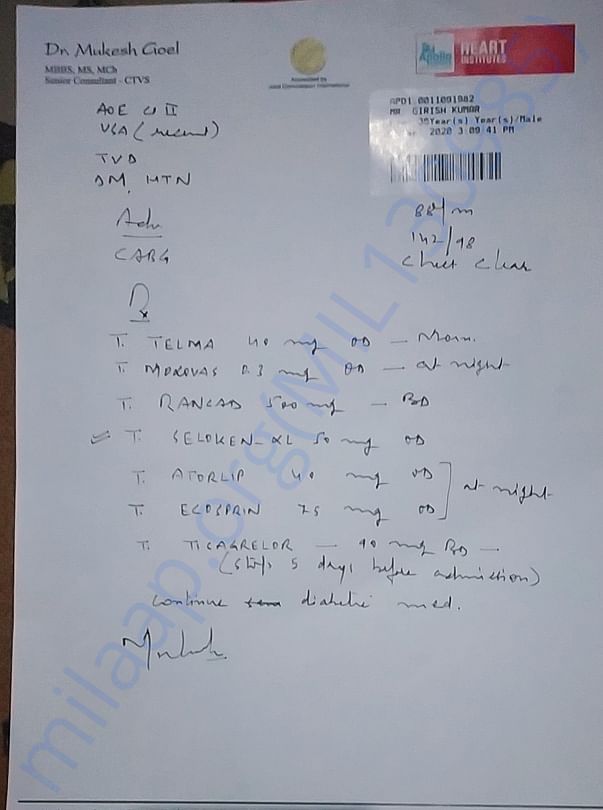 Dr. Mukesh Goel
MBBS, MS, MCh
Senior Consultant - CTVS
Accredited by
Joint Commission International
Apollo
HEART
INSTITUTES
APD1.0011091982
MR GIRISH KUMAR
Year(s) Year(s)/Male
2020 3:09:41 PM
AOE Cl II
USA (recent)
TVD
DM, HTN
Adv
CABG
88/m
142/98
Chest Clear
Rx
T. TELMA 40 mg OD — Morn.
T. MOXOVAS 0.3 mg OD — at night
T. RANCAD 500 mg — BD
T. SELOKEN-XL 50 mg OD
T. ATORLIP 40 mg OD
T. ECOSPRIN 75 mg OD
at night
T. TICAGRELOR — 90 mg BD —
(Stop 5 days before admission)
Continue diabetic med.
milaap.org